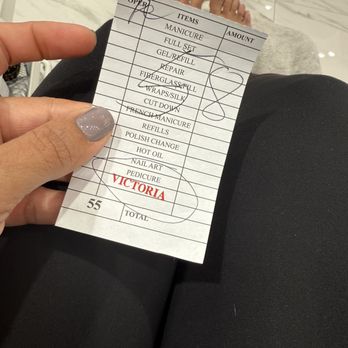 OPER ITEMS AMOUNT
MANICURE
FULL SET
GEL/REFILL
REPAIR
FIBERGLASS/FILL
WRAPS/SILK
CUT DOWN
FRENCH MANICURE
REFILLS
POLISH CHANGE
HOT OIL
NAIL ART
PEDICURE
VICTORIA
55 TOTAL